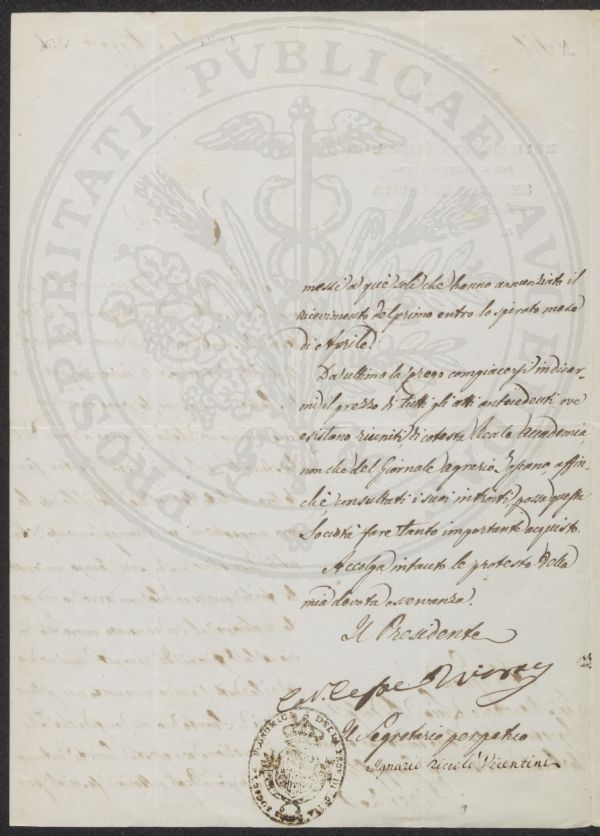 PROSPERITATI PVBLICAE AVGENDAE
messi a que' soli che hanno annunziato il
ricevimento del primo entro lo spirato mese
di Aprile.
Da ultimo la prego compiacersi indicar-
mi il prezzo di tutti gli atti antecedenti ove
esistono riuniti di cotesta Reale Accademia,
non che del Giornale agrario Toscano, affin-
chè consultati i suoi introiti, possa questa
Società fare tanto importante acquisto.
Accolga intanto le proteste della
mia devota osservanza.
Il Presidente
Il Segretario perpetuo
Ignazio Vicentini